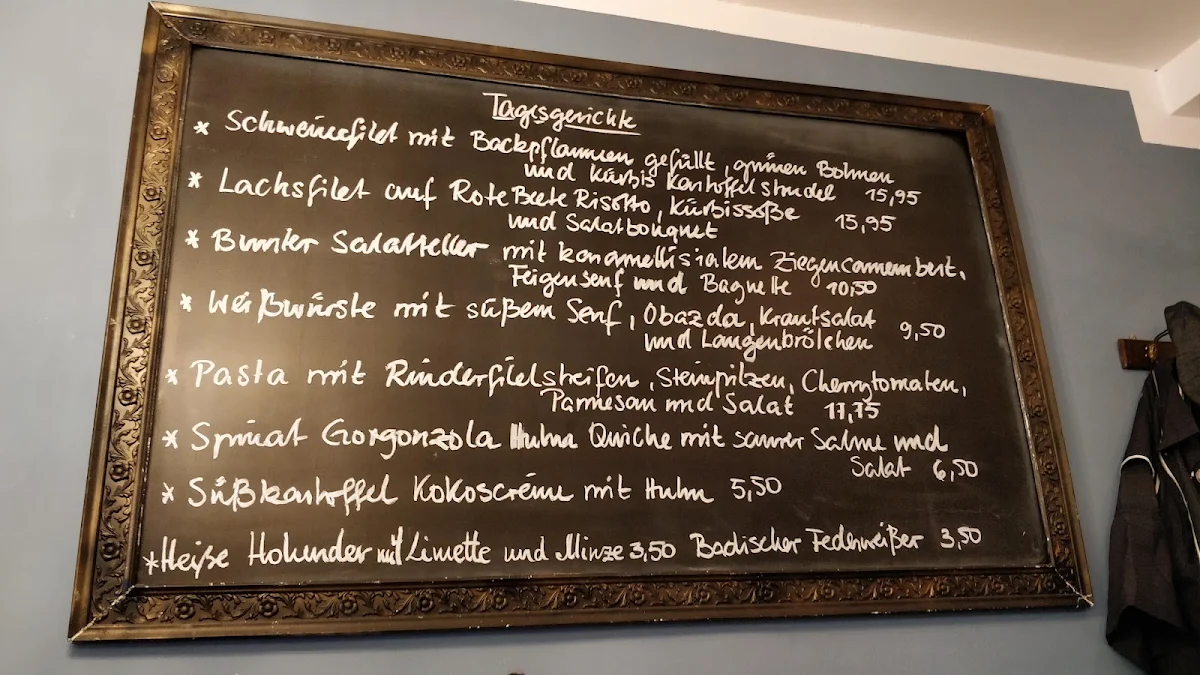 Tagesgerichte
* Schweinefilet mit Backpflaumen gefüllt, grünen Bohnen
und Kürbis Kartoffelstrudel 15,95
* Lachsfilet auf Rote Beete Risotto, Kürbissoße 15,95
und Salatbouquet
* Bunter Salatteller mit karamellisiertem Ziegencamembert,
Feigensenf und Baguette 10,50
* Weißwürste mit süßem Senf, Obazda, Krautsalat 9,50
und Laugenbrötchen
* Pasta mit Rinderfiletstreifen, Steinpilzen, Cherrytomaten,
Parmesan und Salat 11,75
* Spinat Gorgonzola Huhn Quiche mit saurer Sahne und
Salat 6,50
* Süßkartoffel Kokoscrème mit Huhn 5,50
* Heiße Holunder mit Limette und Minze 3,50 Badischer Federweißer 3,50